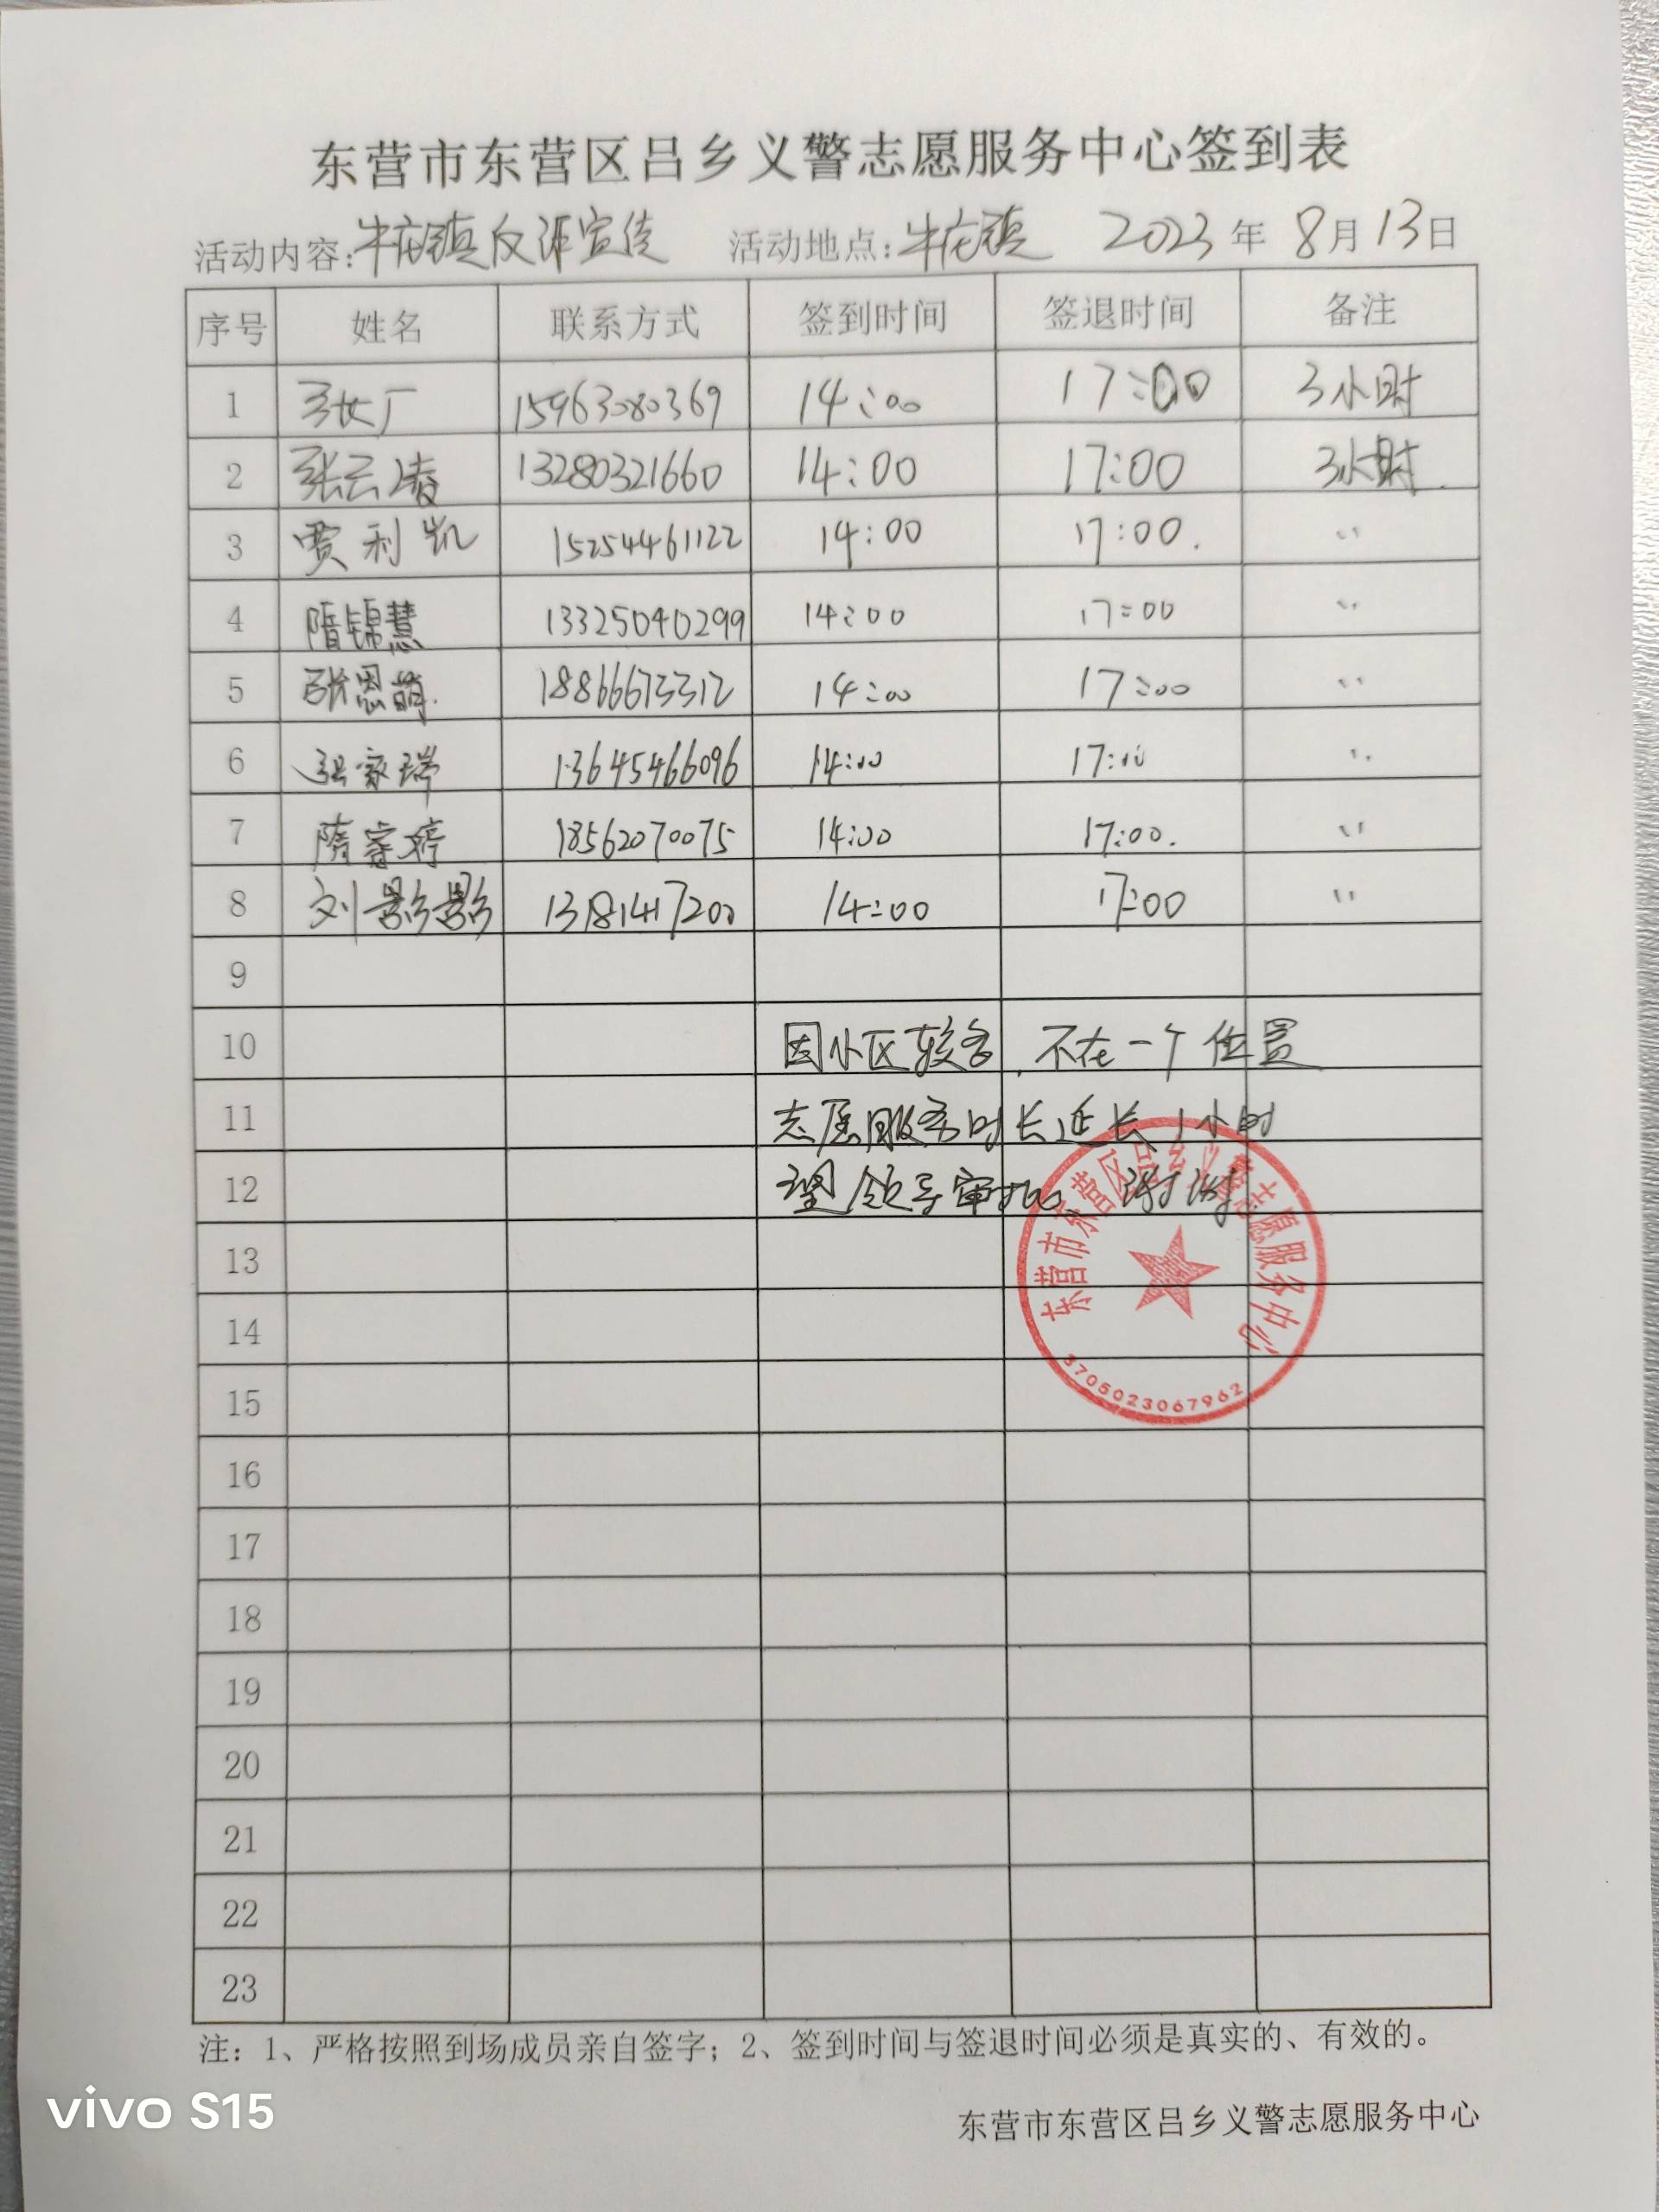 东营市东营区吕乡义警志愿服务中心签到表
活动内容:牛庄镇反诈宣传 活动地点:牛庄镇 2023年8月13日
序号 姓名 联系方式 签到时间 签退时间 备注
1 15963080369 14:00 17:00 3小时
2 张云凌 13280321660 14:00 17:00 3小时
3 贾利凯 15254461122 14:00 17:00. 〃
4 隋锦慧 13325040299 14:00 17:00 〃
5 张恩萌. 18866673312 14:00 17:00 〃
6 张家瑞 13645466096 14:00 17:00 〃
7 隋睿婷 18562070075 14:00 17:00. 〃
8 刘影影 13181417200 14:00 17:00 〃
9
10 因小区较多,不在一个位置
11 志愿服务时长延长1小时
12 望领导审批 谢谢
13
14
15
16
17
18
19
20
21
22
23
东营市东营区吕乡义警志愿服务中心
3705023067962
注:1、严格按照到场成员亲自签字;2、签到时间与签退时间必须是真实的、有效的。
东营市东营区吕乡义警志愿服务中心
vivo S15